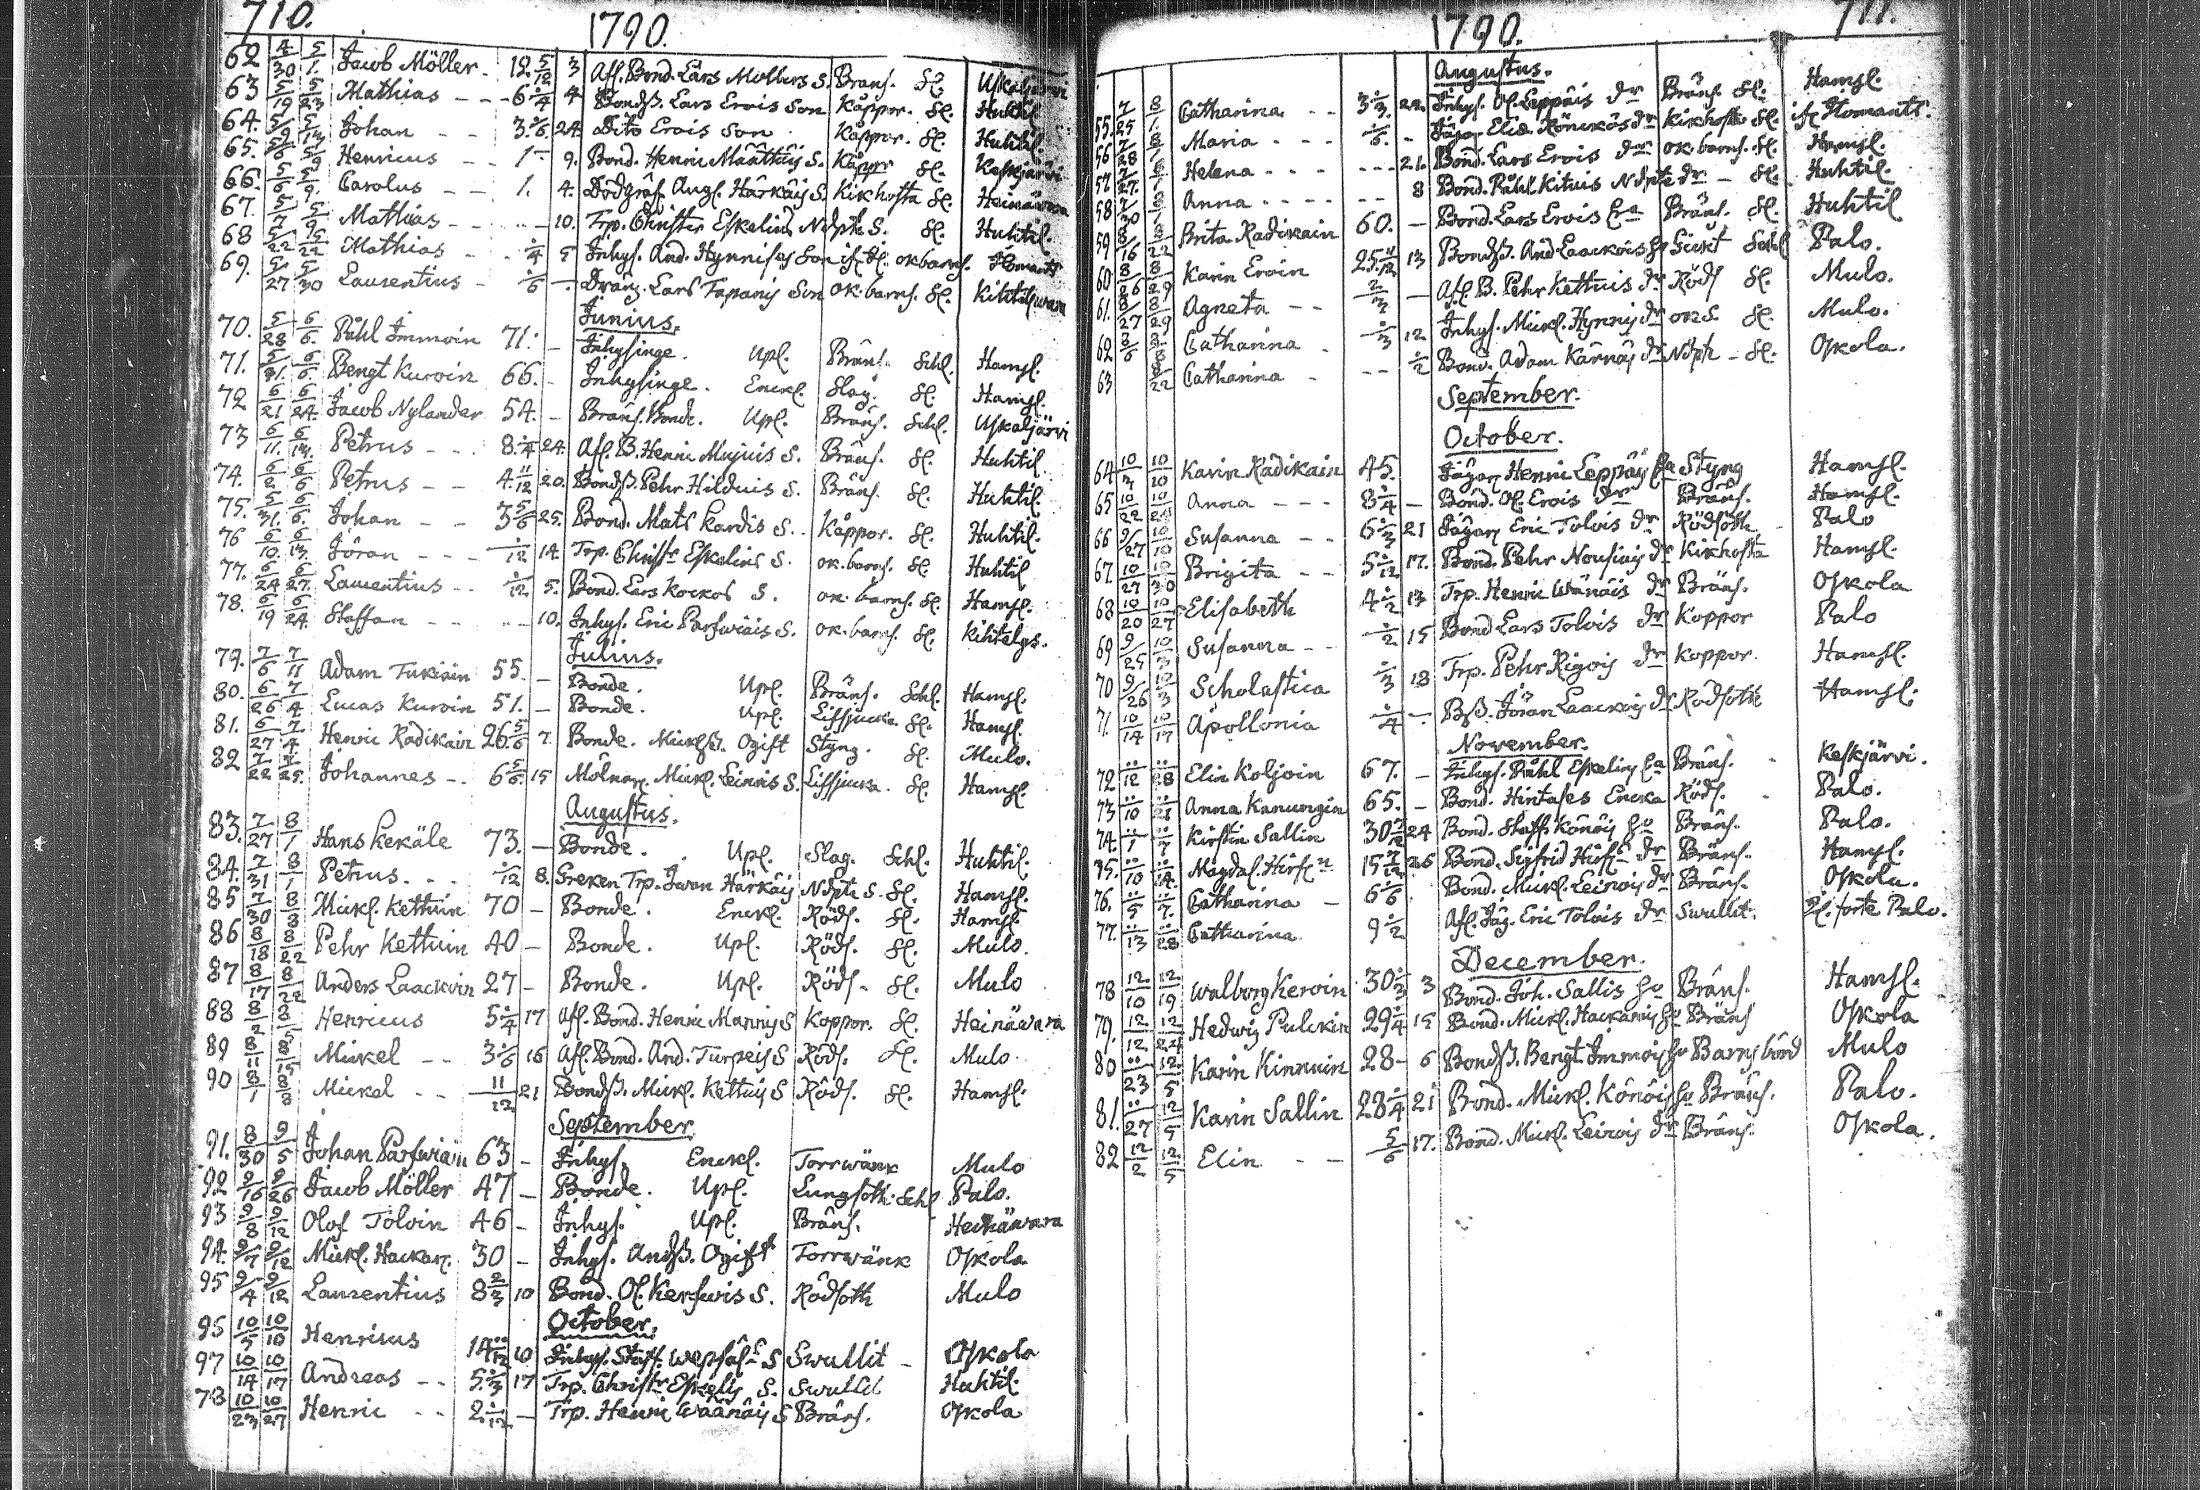 710. 1790.
62 4/30 5/1. Jacob Möller - 12 5/12 3 Afl. Bond. Lars Möllers S. Bräns. Sl. Uskaljärvi
63 5/19 5/23 Mathias - - - 6 1/4 4 Bondß. Lars Erois Son Kåppor. Sl. Huhtil.
64. Johan - - 3. 1/6. 24 Dito Erois Son Kåppor. Sl. Huhtil.
65. Henricus - - 1 - 9. Bond. Henric Määttäis S. Kåppr Sl. Keskjärvi
66. Carolus - - 1. 4. Dödgräf. Augl. Härkäis S. Kikhosta Sl. Heinäwara
67. Mathias - - - 10. Trp. Christer Eskelins Ndptr S. Sl. Huhtil.
68 5/22 Mathias - - 1/4 5 Inhys. And. Hynnises Son ok. barns. Ilomants
69. 5/27 5/30 Laurentius - 1/6 - Dräng. Lars Tapanis Son ok. barns. Sl. Kihtelyswara
Junius.
70. 5/28 6/6. Påhl Immoin 71. - Inhysinge. Upl. Bräns. Schl. Hamsl.
71. 5/31 6/6 Bengt Kuroin 66. - Inhysinge. Enckl. Slag. Sl. Hamsl.
72 6/21 6/24. Jacob Nylander 54. - Bräns. Bonde. Upl. Bräns. Schl. Uskaljärvi
73 6/11. 6/13. Petrus - - - 8. 1/4 24. Afl. B. Henric Mujuis S. Bräns. Sl. Huhtil.
74. 6/2 6/6 Petrus - - 4. 11/12 20. Bondß. Pehr Hilduis S. Bräns. Sl. Huhtil.
75. 5/31. 6/6. Johan - - 3 5/6 25. Bond. Mats Kardis S. Kåppor. Sl. Huhtil.
76 6/10 6/13. Jöran - - - 1/12 14. Trp. Christr Eskelins S. ok. barns. Sl. Huhtil
77. 6/24 6/27. Laurentius - - 1/12 5. Bond. Lars Kockos S. ok. barns. Sl. Hamsl.
78. 6/19 6/24. Staffan - - - - 10. Inhys. Eric Parfwiäis S. ok. barns. Sl. Kihtelys.
Julius.
79. 7/6 7/11 Adam Tukiain 55. - Bonde. Upl. Bräns. Schl. Hamsl.
80. 6/26 7/4 Lucas Kuroin 51. - Bonde. Upl. Liffsjucka Sl. Hamsl.
81. 6/27 7/4 Henric Radikain 26. 5/6 7. Bonde. Mickelß. Ogift Styng. Sl. Mulo.
82 7/22 7/25. Johannes - . 6 5/6. 15 Mölnar. Mickl. Leinois S. Liffsjucka. Sl. Hamsl.
Augustus.
83. 7/27 8/1 Hans Kekäle 73. - Bonde. Upl. Slag. Schl. Huhtil.
84. 7/31 8/1 Petrus. - - 1/12 8. Greken Trp. Iwan Härkäis Ndptr S. Sl. Hamsl.
85 7/30 8/8 Mickl. Kettuin 70 - Bonde. Enckl. Röds. Sl. Hamsl.
86 8/18 8/22 Pehr Kettuin 40 - Bonde. Upl. Röds. Sl. Mulo.
87 8/17 8/22 Anders Laackoin 27 - Bonde. Upl. Röds. Sl. Mulo
88 8/2 Henricus 5 1/4 17 Afl. Bond. Henric Mannis S Koppor. Sl. Heinäwara
89 8/11 8/15 Mickel - - 3 1/6 16 Afl. Bond. And. Turpeis S Röds. Sl. Mulo
90 8/1 8/8 Mickel - - 11/12 21 Bondß. Mickl. Kettuis S Röds. Sl. Hamsl.
September
91. 8/30 9/5 Johan Parfwiain 63 - Inhys. Enckl. Torrwänk Mulo
92 9/16 9/26 Jacob Möller 47 - Bonde. Upl. Lungsoth. Schl Palo.
93 9/8 9/12 Olof Tolvin 46 - Inhys. Upl. Bräns. Heinäwara
94. 9/7 9/12 Mickl. Hackar. 30 - Inhys. Andß. Ogift Torrwänk Oskola
95 9/4 9/12 Laurentius 8 2/3 10 Bond. Ol. Kerfwis S. Rödsoth Mulo
October.
96 10/5 10/10 Henricus 14 11/12 10 Inhys. Staff. S Swullit - Oskola
97 10/14 10/17 Andreas - - 5. 1/3 17 Trp. Christr Eskelis S. Swullit Huhtil.
98 10/23 10/27 Henric - - 2. 1/12 - Trp. Henric Wäänäis S Bräns. Oskola
1790. 711.
Augustus.
55. 7/25 8/1 Catharina - - 3 1/3. 22. Inhys. Ol. Leppäis Dr Bräns. Sl. Hamsl.
56 7/28 8/1 Maria - - - 1/6. - Jägar Elia. Rönckös dr Kikhosta Sl. Ilomants.
57 7/27. 8/1 Helena - - - - - - 21. Bond. Lars Erois dr ok barns. Sl. Hamsl.
58 7/30 8/1 Anna - - - - - - 8 Bond. Påhl Kituis Ndpte dr - Sl. Huhtil.
59 8/16 8/22 Brita Radikain 60. - Bond. Lars Erois Enka Bräns. Sl. Huhtil
60 8/26 8/29 Karin Eroin 25 11/12 13 Bondß. And Laackois hu Gickt Schl Palo.
61. 8/27 8/29 Agneta - - 2/3 - Afl. B. Pehr Kettuis dr Röds Sl. Mulo.
62 8/6 8/8 Catharina - 1/3 12 Inhys. Mickl. Hynnis dr ok S. Sl. Mulo.
63 8/22 Catharina - - - 1/2 Bond. Adam Kärnäs dr Ndptr - Sl. Oskola.
September.
October.
64 10/3 10/10 Karin Radikain 45. Jägar Henric Leppäis Ea Styng Hamsl.
65 10/22 10/24 Anna - - - 8 1/4 - Bond. Ol. Erois dr Bräns. Hamsl.
66 9/27 10/10 Susanna - - 6 1/2 21 Jägar Eric Tolvis dr Rödsoth - Palo
67. 10/27 10/30 Brigita - - 5 1/12 17. Bond. Pehr Nousiais dr Kikhosta Hamsl.
68 10/20 10/27 Elisabeth 4 1/2 13 Trp. Henric Wänäis dr Bräns. Oskola
69 9/25 10/3 Susanna - - 1/2 15 Bond Lars Tolvis dr Koppor Palo
70 9/26 10/3 Scholastica 1/3 18 Trp. Pehr Rigois dr Koppor. Hamsl.
71. 10/14 10/17 Apollonia 1/4 - Bß. Jöran Laackois dr Rödsoth Hamsl.
November.
72 11/12 11/28 Elin Koljoin 67. - Inhys. Påhl Eskelis Ea Bräns. Keskjärvi.
73 11/10 11/21 Anna Kanungin 65. - Bond. Hintases Encka Röds. Palo.
74. 11/1 11/7 Kirstin Sallin 30 7/12 24 Bond. Staff. Könöis hu Bräns. Palo.
75. 11/10 11/14 Magdal. Hirf. 15 7/12 26 Bond. Sigfrid Hirf. dr Bräns. Hamsl.
76. 11/5 11/7. Catharina - 6 1/6 Bond. Mickl. Leinois dr Bräns. Oskola.
77. 11/13 11/28 Catharina 9 1/2 Afl. Jäg. Eric Tolvis dr Swullit. Sl. forte Palo.
December.
78 12/10 12/19 Walborg Keroin 30 1/3 3 Bond. Joh. Sallis hu Bräns. Hamsl.
79. 12/12 12/24 Hedwig Pulckin 29 1/4 15 Bond. Mickl. Hackaris hu Bräns Oskola
80 11/23 12/5 Karin Kinnuin 28 - 6 Bondß. Bengt Immois hu Barnsbörd Mulo
81. 11/27 12/5 Karin Sallin 28 1/4 21 Bond. Mickl. Könöis hu Bräns. Palo.
82 12/2 12/5 Elin - - 5/6 17. Bond. Mickl. Leinois dr Bräns. Oskola.